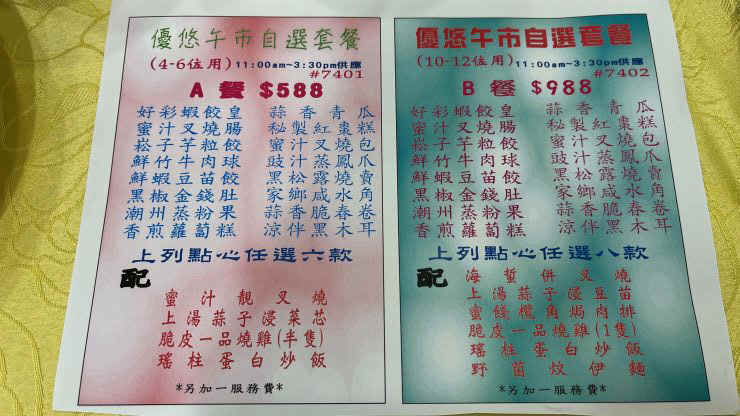 優悠午市自選套餐
(4-6位用) 11:00am~3:30pm供應
#7401
A 餐 $588
好彩蝦餃皇 蒜香青瓜
蜜汁叉燒腸 秘製紅棗糕
崧子芋粒餃 蜜汁叉燒包
鮮竹牛肉球 豉汁蒸鳳爪
鮮蝦豆苗餃 黑松露燒賣
黑椒金錢肚 家鄉咸水角
潮州蒸粉果 蒜香脆春卷
香煎蘿蔔糕 涼伴黑木耳
上列點心任選六款
配
蜜汁靚叉燒
上湯蒜子浸菜芯
脆皮一品燒雞(半隻)
瑤柱蛋白炒飯
*另加一服務費*
優悠午市自選套餐
(10-12位用) 11:00am~3:30pm供應
#7402
B 餐 $988
好彩蝦餃皇 蒜香青瓜
蜜汁叉燒腸 秘製紅棗糕
崧子芋粒餃 蜜汁叉燒包
鮮竹牛肉球 豉汁蒸鳳爪
鮮蝦豆苗餃 黑松露燒賣
黑椒金錢肚 家鄉咸水角
潮州蒸粉果 蒜香脆春卷
香煎蘿蔔糕 涼伴黑木耳
上列點心任選八款
配
海蜇併叉燒
上湯蒜子浸豆苗
蜜餞欖角焗肉排
脆皮一品燒雞(1隻)
瑤柱蛋白炒飯
野菌炆伊麵
*另加一服務費*